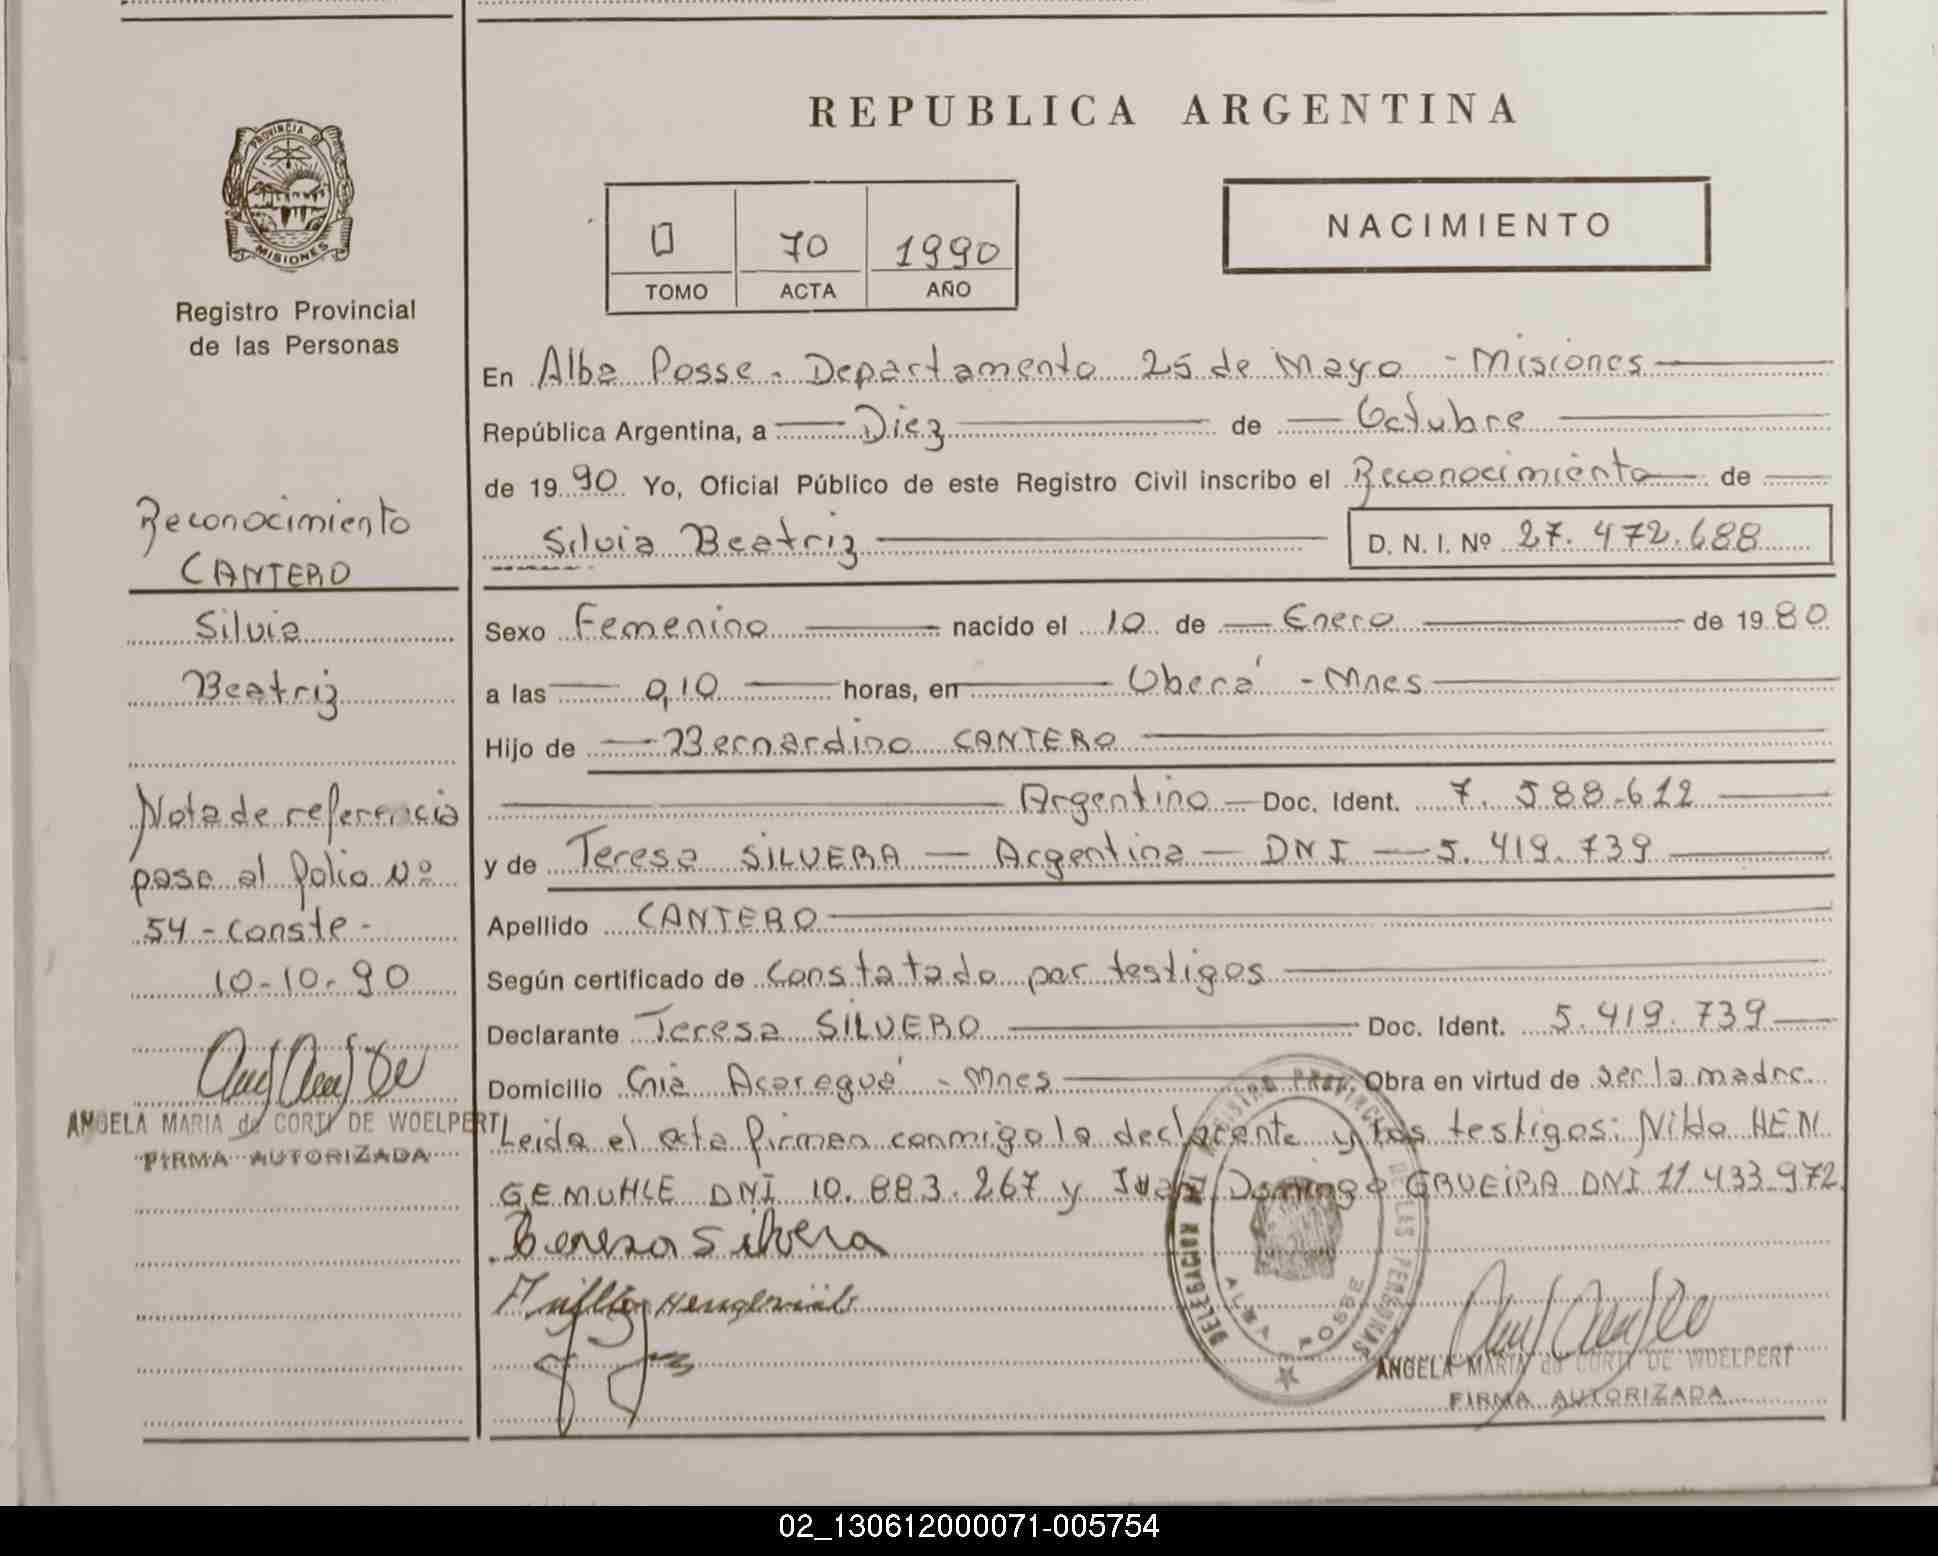 REPUBLICA ARGENTINA
PROVINCIA DE
MISIONES
Registro Provincial
de las Personas
0 70 1990
TOMO ACTA AÑO
NACIMIENTO
Reconocimiento
CANTERO
Silvia
Beatriz
Nota de referencia
pase al folio Nº
54 - Conste -
10-10-90
ANGELA MARIA de CORTI DE WOELPERT
FIRMA AUTORIZADA
En Alba Posse - Departamento 25 de Mayo - Misiones
República Argentina, a Diez de Octubre
de 1990 Yo, Oficial Público de este Registro Civil inscribo el Reconocimiento de
Silvia Beatriz D. N. I. Nº 27.472.688
Sexo Femenino nacido el 10 de Enero de 1980
a las 0,10 horas, en Oberá - Mnes
Hijo de Bernardino CANTERO
Argentino Doc. Ident. 7.588.612
y de Teresa SILVERA — Argentina — DNI — 5.419.739
Apellido CANTERO
Según certificado de Constatado por testigos
Declarante Teresa SILVERO Doc. Ident. 5.419.739
Domicilio Cnia Acaragua - Mnes Obra en virtud de ser la madre
Leida el acta firman conmigo la declarante y los testigos: Nildo HEN
GEMUHLE DNI 10.883.267 y Juan Domingo GAUEIRA DNI 11.433.972
Teresa Silvera
DELEGACION DEL REGISTRO PROVINCIAL DE LAS PERSONAS
ALBA POSSE
ANGELA MARIA de CORTI DE WOELPERT
FIRMA AUTORIZADA
02_130612000071-005754